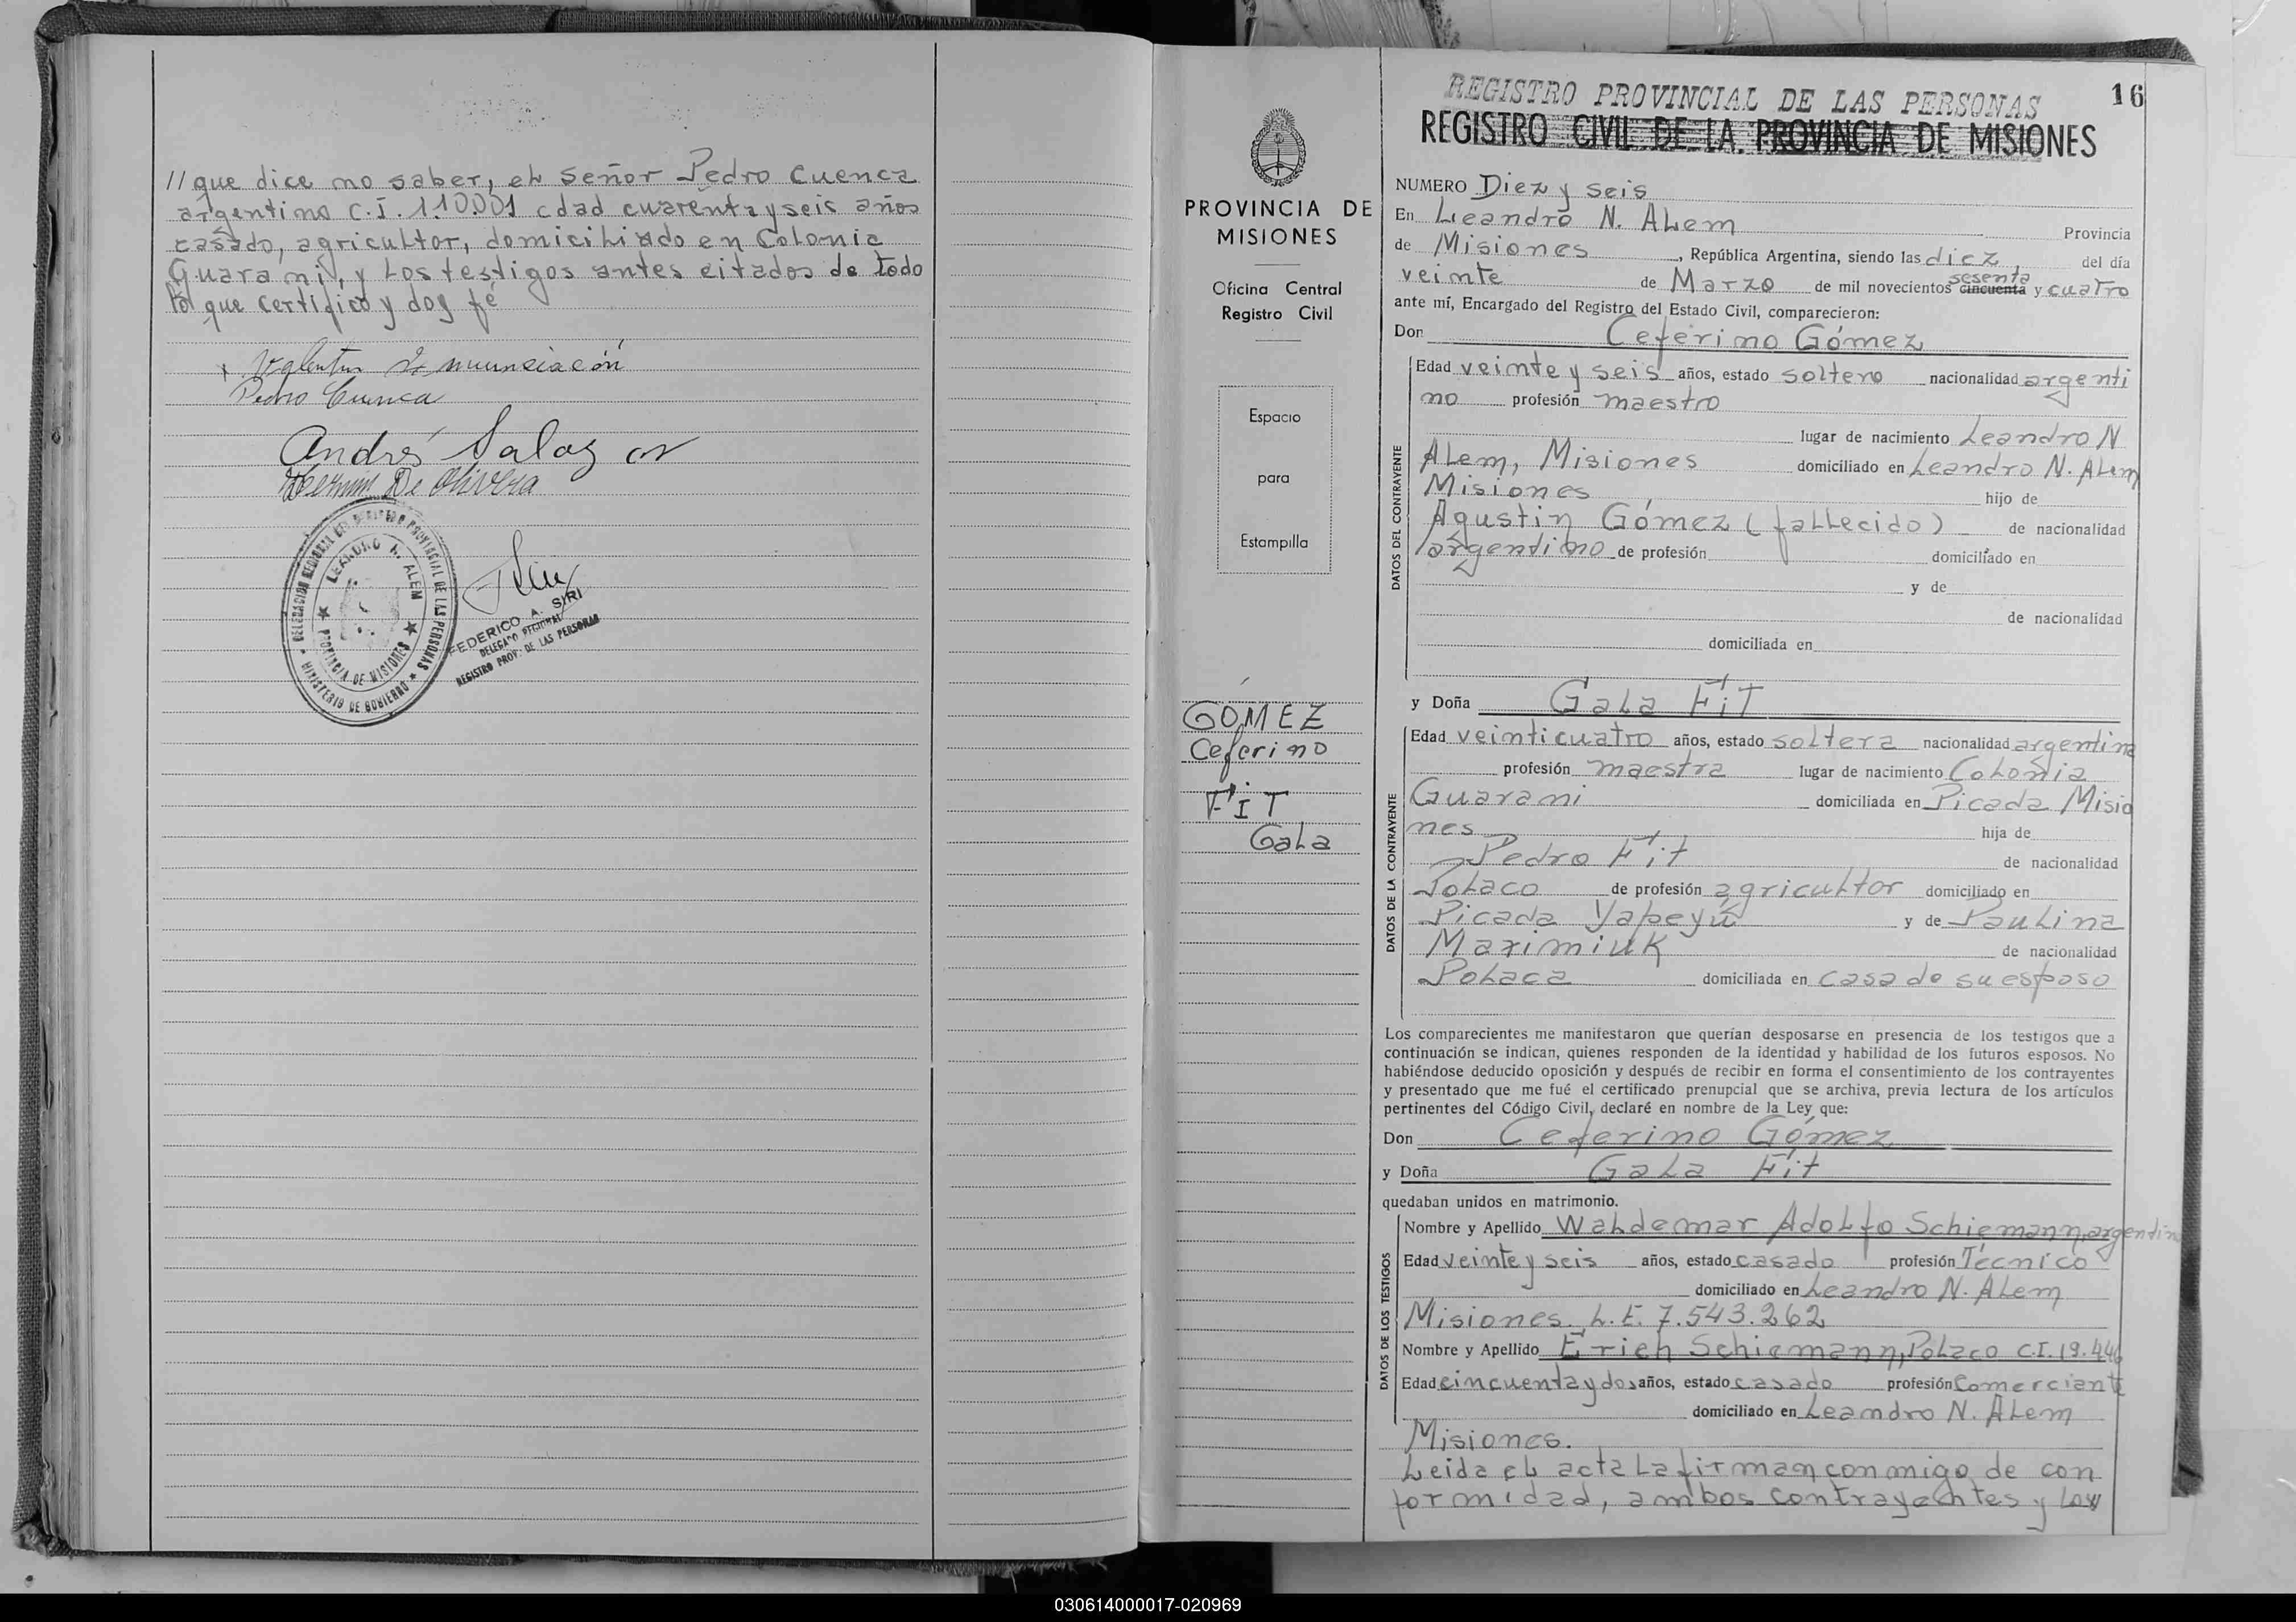 // que dice no saber, el señor Pedro Cuenca
argentino C.I. 110.001 edad cuarenta y seis años
casado, agricultor, domiciliado en Colonia
Guaraní, y los testigos antes citados de todo
lo que certifico y doy fé
Pedro Cuenca
Andrés Salazar
De Olivera
DELEGACION REGIONAL DEL REGISTRO PROVINCIAL DE LAS PERSONAS
LEANDRO N. ALEM
PROVINCIA DE MISIONES
MINISTERIO DE GOBIERNO
FEDERICO A. SIRI
DELEGADO REGIONAL
REGISTRO PROV. DE LAS PERSONAS
PROVINCIA DE
MISIONES
Oficina Central
Registro Civil
Espacio
para
Estampilla
GOMEZ
Ceferino
FIT
Gala
REGISTRO PROVINCIAL DE LAS PERSONAS
16
REGISTRO CIVIL DE LA PROVINCIA DE MISIONES
NUMERO Diez y seis
En Leandro N. Alem Provincia
de Misiones, República Argentina, siendo las diez del día
veinte de Marzo de mil novecientos cincuenta sesenta y cuatro
ante mí, Encargado del Registro del Estado Civil, comparecieron:
Don Ceferino Gómez
DATOS DEL CONTRAYENTE
Edad veinte y seis años, estado soltero nacionalidad argenti
no profesión maestro
lugar de nacimiento Leandro N
Alem, Misiones domiciliado en Leandro N. Alem
Misiones hijo de
Agustin Gómez (fallecido) de nacionalidad
argentino de profesión domiciliado en
y de
de nacionalidad
domiciliada en
y Doña Gala Fit
DATOS DE LA CONTRAYENTE
Edad veinticuatro años, estado soltera nacionalidad argentina
profesión maestra lugar de nacimiento Colonia
Guarani domiciliada en Picada Misio
nes hija de
Pedro Fit de nacionalidad
Polaco de profesión agricultor domiciliado en
Picada Yapeyú y de Paulina
Maximiuk de nacionalidad
Polaca domiciliada en casa de su esposo
Los comparecientes me manifestaron que querían desposarse en presencia de los testigos que a
continuación se indican, quienes responden de la identidad y habilidad de los futuros esposos. No
habiéndose deducido oposición y después de recibir en forma el consentimiento de los contrayentes
y presentado que me fué el certificado prenupcial que se archiva, previa lectura de los artículos
pertinentes del Código Civil, declaré en nombre de la Ley que:
Don Ceferino Gómez
y Doña Gala Fit
quedaban unidos en matrimonio.
DATOS DE LOS TESTIGOS
Nombre y Apellido Waldemar Adolfo Schiemann, argentino
Edad veinte y seis años, estado casado profesión Técnico
domiciliado en Leandro N. Alem
Misiones. L.E. 7.543.262
Nombre y Apellido Erich Schiemann, Polaco C.I. 19.446
Edad cincuenta y dos años, estado casado profesión Comerciante
domiciliado en Leandro N. Alem
Misiones.
Leida el acta la firman conmigo de con
formidad, ambos contrayentes y los
030614000017-020969